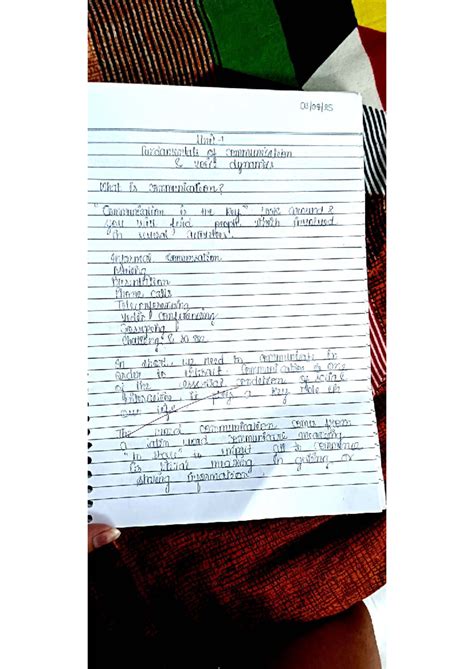 Unit-1
Fundamentals of communication
& voice dynamics
What is communication?
"Communication is the key" look around &
you will find people involved
in several activities.
Informal conversation
Presentation
Phone calls
Teleconferencing
Video conferencing
Chatting & so on
In short, we need to communicate in
order to interact. Communication is one
of the essential condition of social
interaction & play a key role in
our life
The word communication comes from
a latin word communicare meaning
"to " is impart all to
its literal meaning in giving or
sharing information